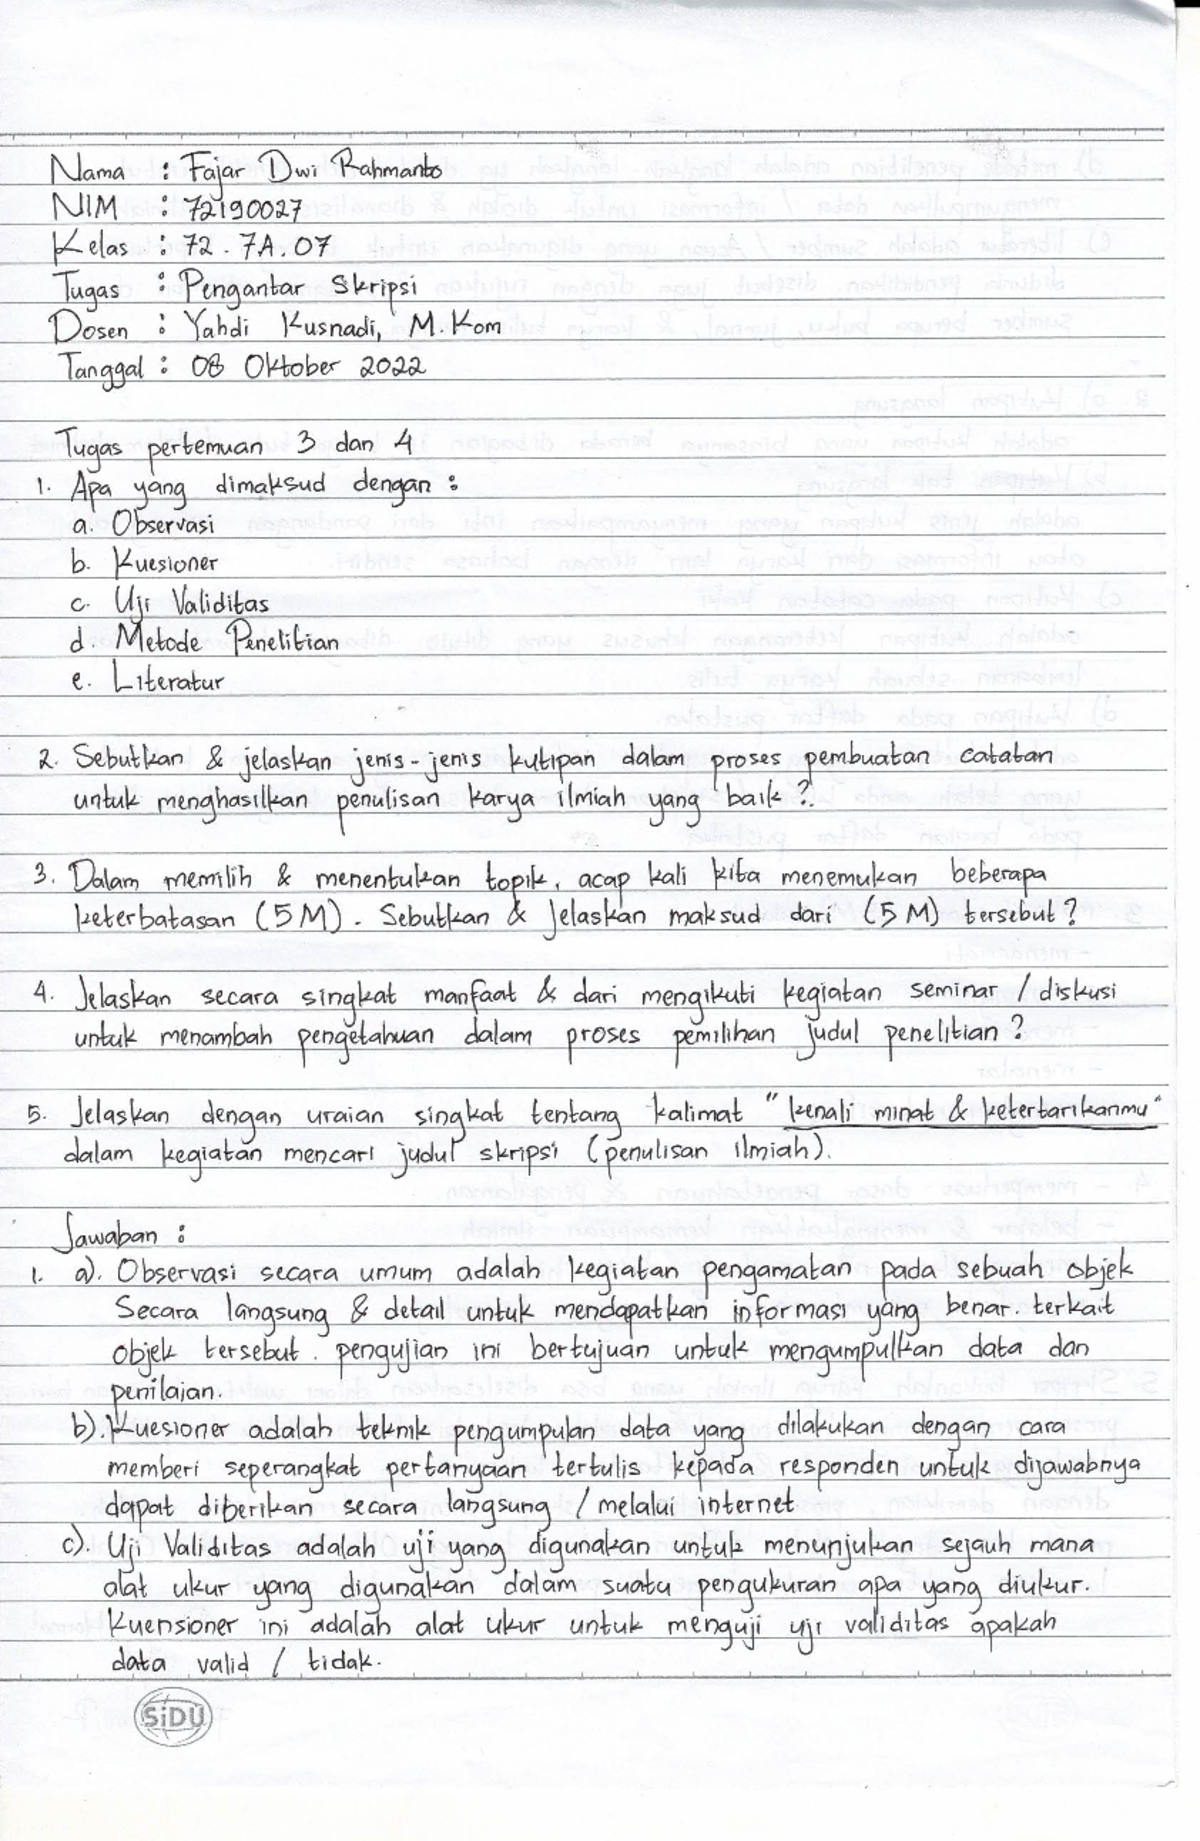 Nama : Fajar Dwi Rahmanto
NIM : 72190027
Kelas : 72.7A.07
Tugas : Pengantar Skripsi
Dosen : Yahdi Kusnadi, M.Kom
Tanggal : 08 Oktober 2022
Tugas pertemuan 3 dan 4
1. Apa yang dimaksud dengan :
a. Observasi
b. Kuesioner
c. Uji Validitas
d. Metode Penelitian
e. Literatur
2. Sebutkan & jelaskan jenis-jenis kutipan dalam proses pembuatan catatan
untuk menghasilkan penulisan karya ilmiah yang baik ?
3. Dalam memilih & menentukan topik, acap kali kita menemukan beberapa
keterbatasan (5M). Sebutkan & jelaskan maksud dari (5M) tersebut ?
4. Jelaskan secara singkat manfaat & dari mengikuti kegiatan seminar / diskusi
untuk menambah pengetahuan dalam proses pemilihan judul penelitian ?
5. Jelaskan dengan uraian singkat tentang kalimat "kenali minat & ketertarikanmu"
dalam kegiatan mencari judul skripsi (penulisan ilmiah).
Jawaban :
1. a). Observasi secara umum adalah kegiatan pengamatan pada sebuah objek
Secara langsung & detail untuk mendapatkan informasi yang benar. terkait
objek tersebut. pengujian ini bertujuan untuk mengumpulkan data dan
penilaian.
b) Kuesioner adalah teknik pengumpulan data yang dilakukan dengan cara
memberi seperangkat pertanyaan tertulis kepada responden untuk dijawabnya
dapat diberikan secara langsung / melalui internet
c). Uji Validitas adalah uji yang digunakan untuk menunjukan sejauh mana
alat ukur yang digunakan dalam suatu pengukuran apa yang diukur.
Kuensioner ini adalah alat ukur untuk menguji uji validitas apakah
data valid / tidak.
SiDU